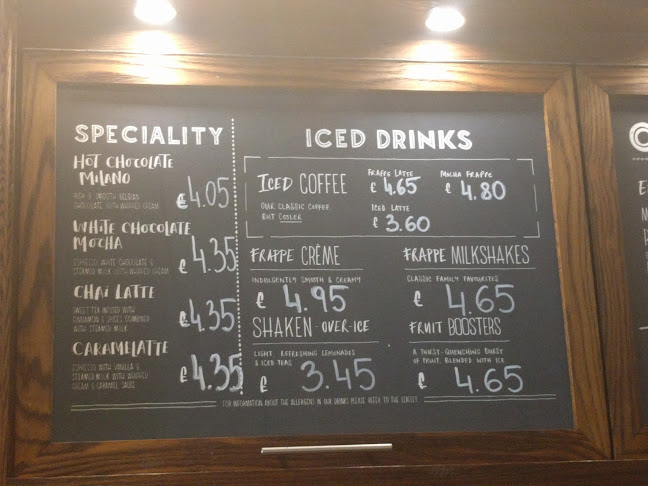 SPECIALITY
HOT CHOCOLATE
MILANO
£4.05
RICH & SMOOTH BELGIAN
CHOCOLATE WITH WHIPPED CREAM
WHITE CHOCOLATE
MOCHA
£4.35
ESPRESSO, WHITE CHOCOLATE &
STEAMED MILK WITH WHIPPED CREAM
CHAI LATTE
£4.35
SWEET TEA INFUSED WITH
CINNAMON & SPICES COMBINED
WITH STEAMED MILK
CARAMELATTE
£4.35
ESPRESSO WITH VANILLA &
STEAMED MILK WITH WHIPPED
CREAM & CARAMEL SAUCE
ICED DRINKS
ICED COFFEE
OUR CLASSIC COFFEE
BUT COOLER
FRAPPE LATTE
£ 4.65
MOCHA FRAPPE
£ 4.80
ICED LATTE
£ 3.60
FRAPPE CRÈME
INDULGENTLY SMOOTH & CREAMY
£ 4.95
FRAPPE MILKSHAKES
CLASSIC FAMILY FAVOURITES
£ 4.65
SHAKEN - OVER - ICE
LIGHT, REFRESHING LEMONADES
& ICED TEAS
£ 3.45
FRUIT BOOSTERS
A THIRST-QUENCHING BURST
OF FRUIT, BLENDED WITH ICE
£ 4.65
FOR INFORMATION ABOUT THE ALLERGENS IN OUR DRINKS PLEASE REFER TO THE LEAFLET